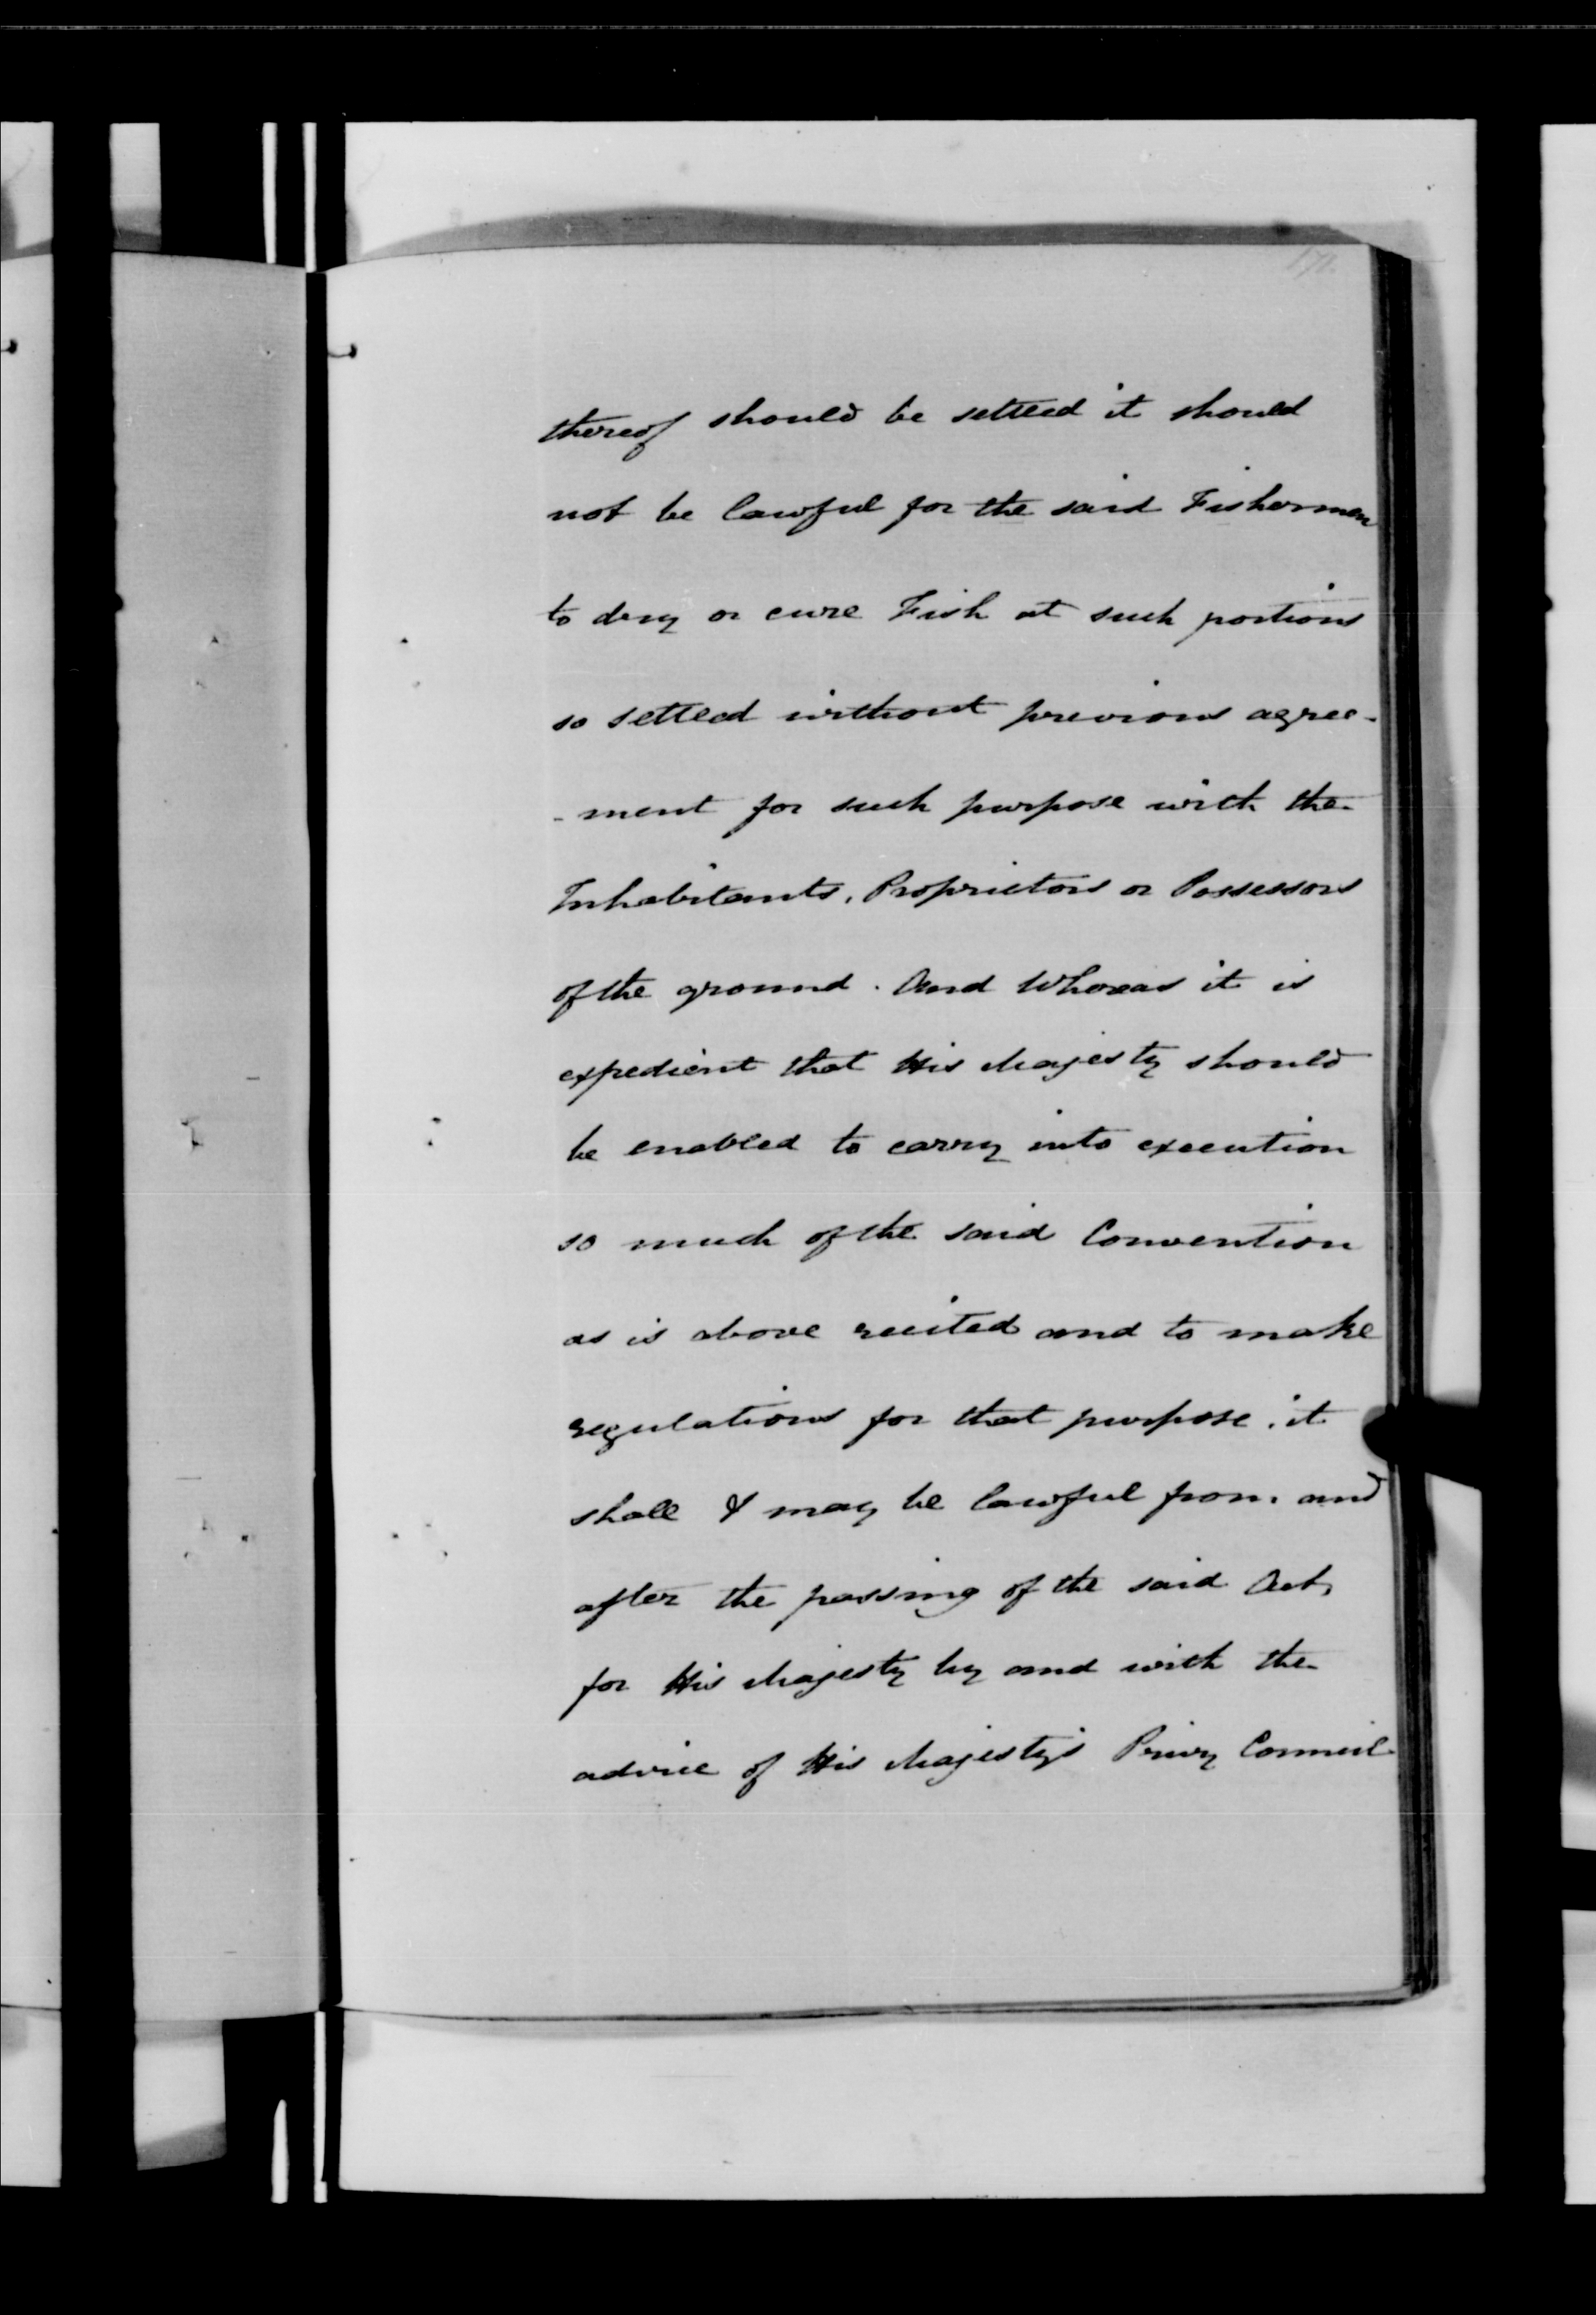 171.
thereof should be settled it should
not be lawful for the said Fishermen
to dry or cure Fish at such portions
so settled without previous agree-
-ment for such purpose with the
Inhabitants, Proprietors or Possessors
of the ground. And Whereas it is
expedient that His Majesty should
be enabled to carry into execution
so much of the said Convention
as is above recited and to make
regulations for that purpose, it
shall & may be lawful from and
after the passing of the said Act,
for His Majesty by and with the
advice of His Majesty's Privy Council